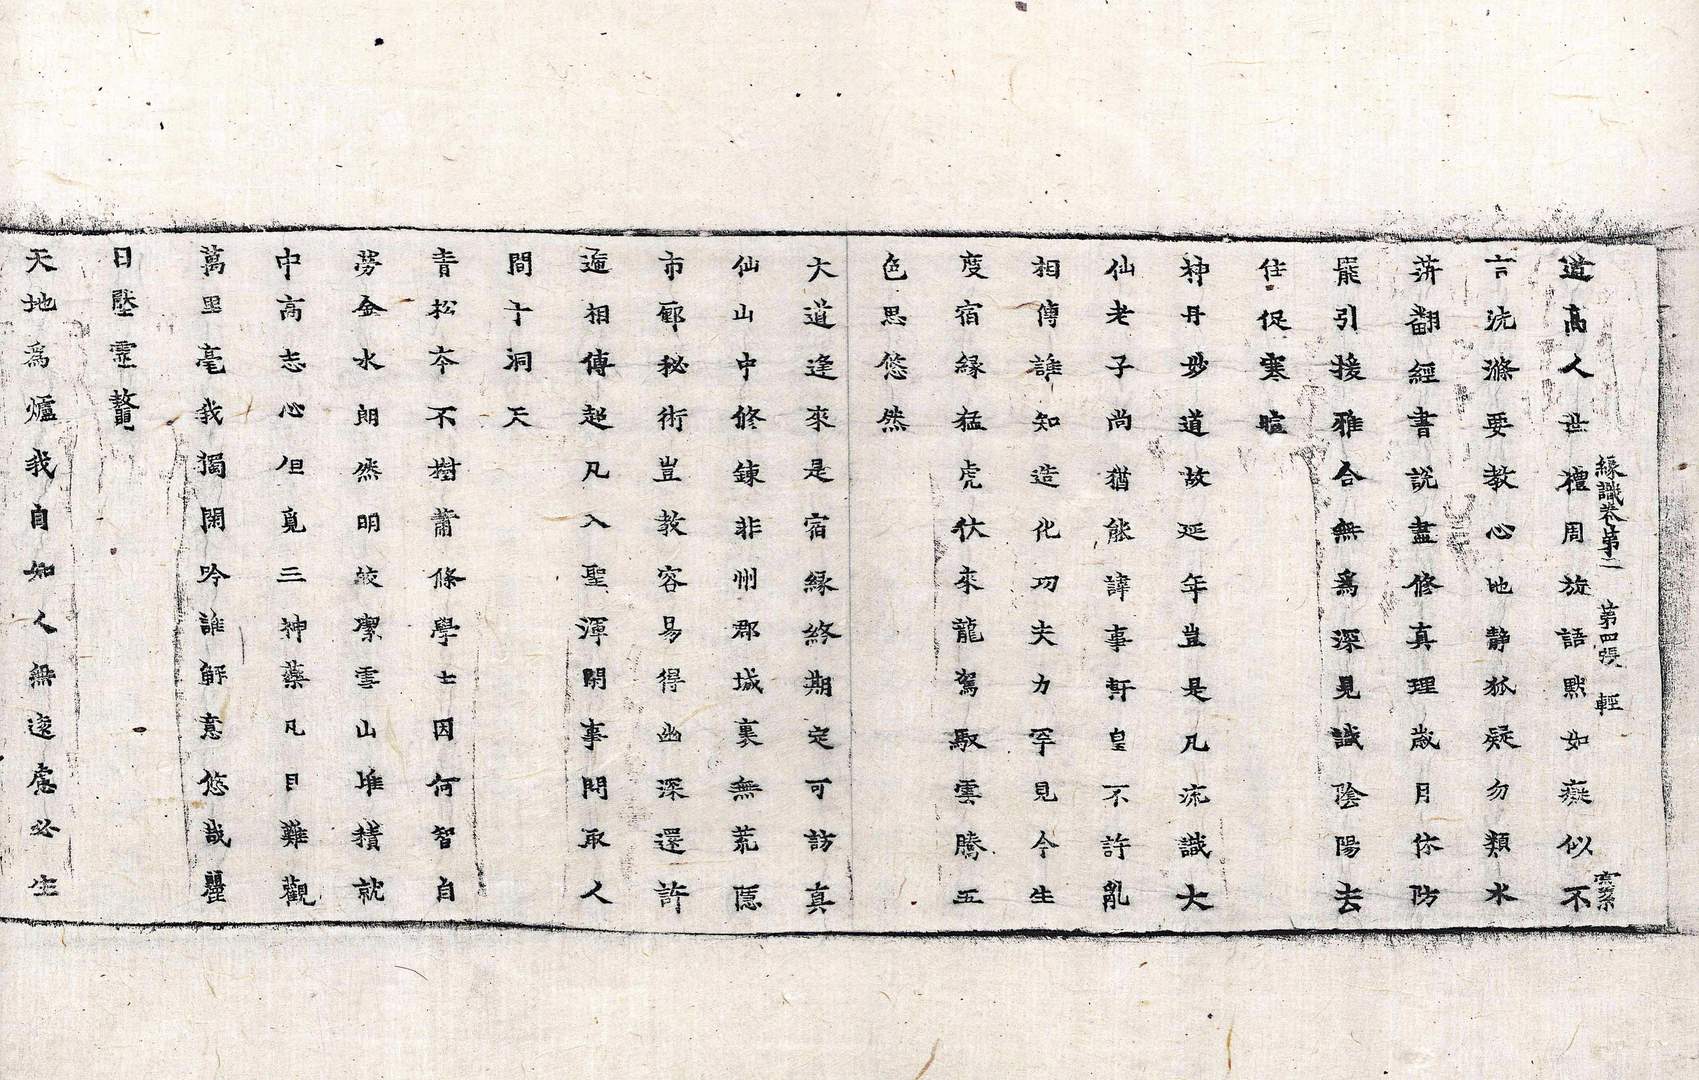 緣識卷第二 第四張 輕
道高人世禮周旋語默如癡似不
言洗滌要教心地静狐疑勿類水
萍翻經書說盡修真理歲月依防
罷引援雅合無爲深見識陰陽去
住促寒暄
神丹妙道故延年豈是凡流識大
仙老子尚猶能諱事軒皇不許亂
相傳誰知造化功夫力罕見今生
度宿緣猛虎伏來龍駕馭雲騰五
色思悠然
大道逢來是宿緣終期定可訪真
仙山中修鍊非州郡城裏無荒隱
市鄽秘術豈教容易得幽深還許
遞相傳超凡入聖渾閑事閇取人
間十洞天
青松夲不樹蕭條學士因何智自
勞金水朗然明皎潔雪山堆積就
中高志心但覓三神藥凡目難觀
萬里毫我獨閑吟誰解意悠哉
日壓靈鼇
天地爲爐我自如人無遠慮必生